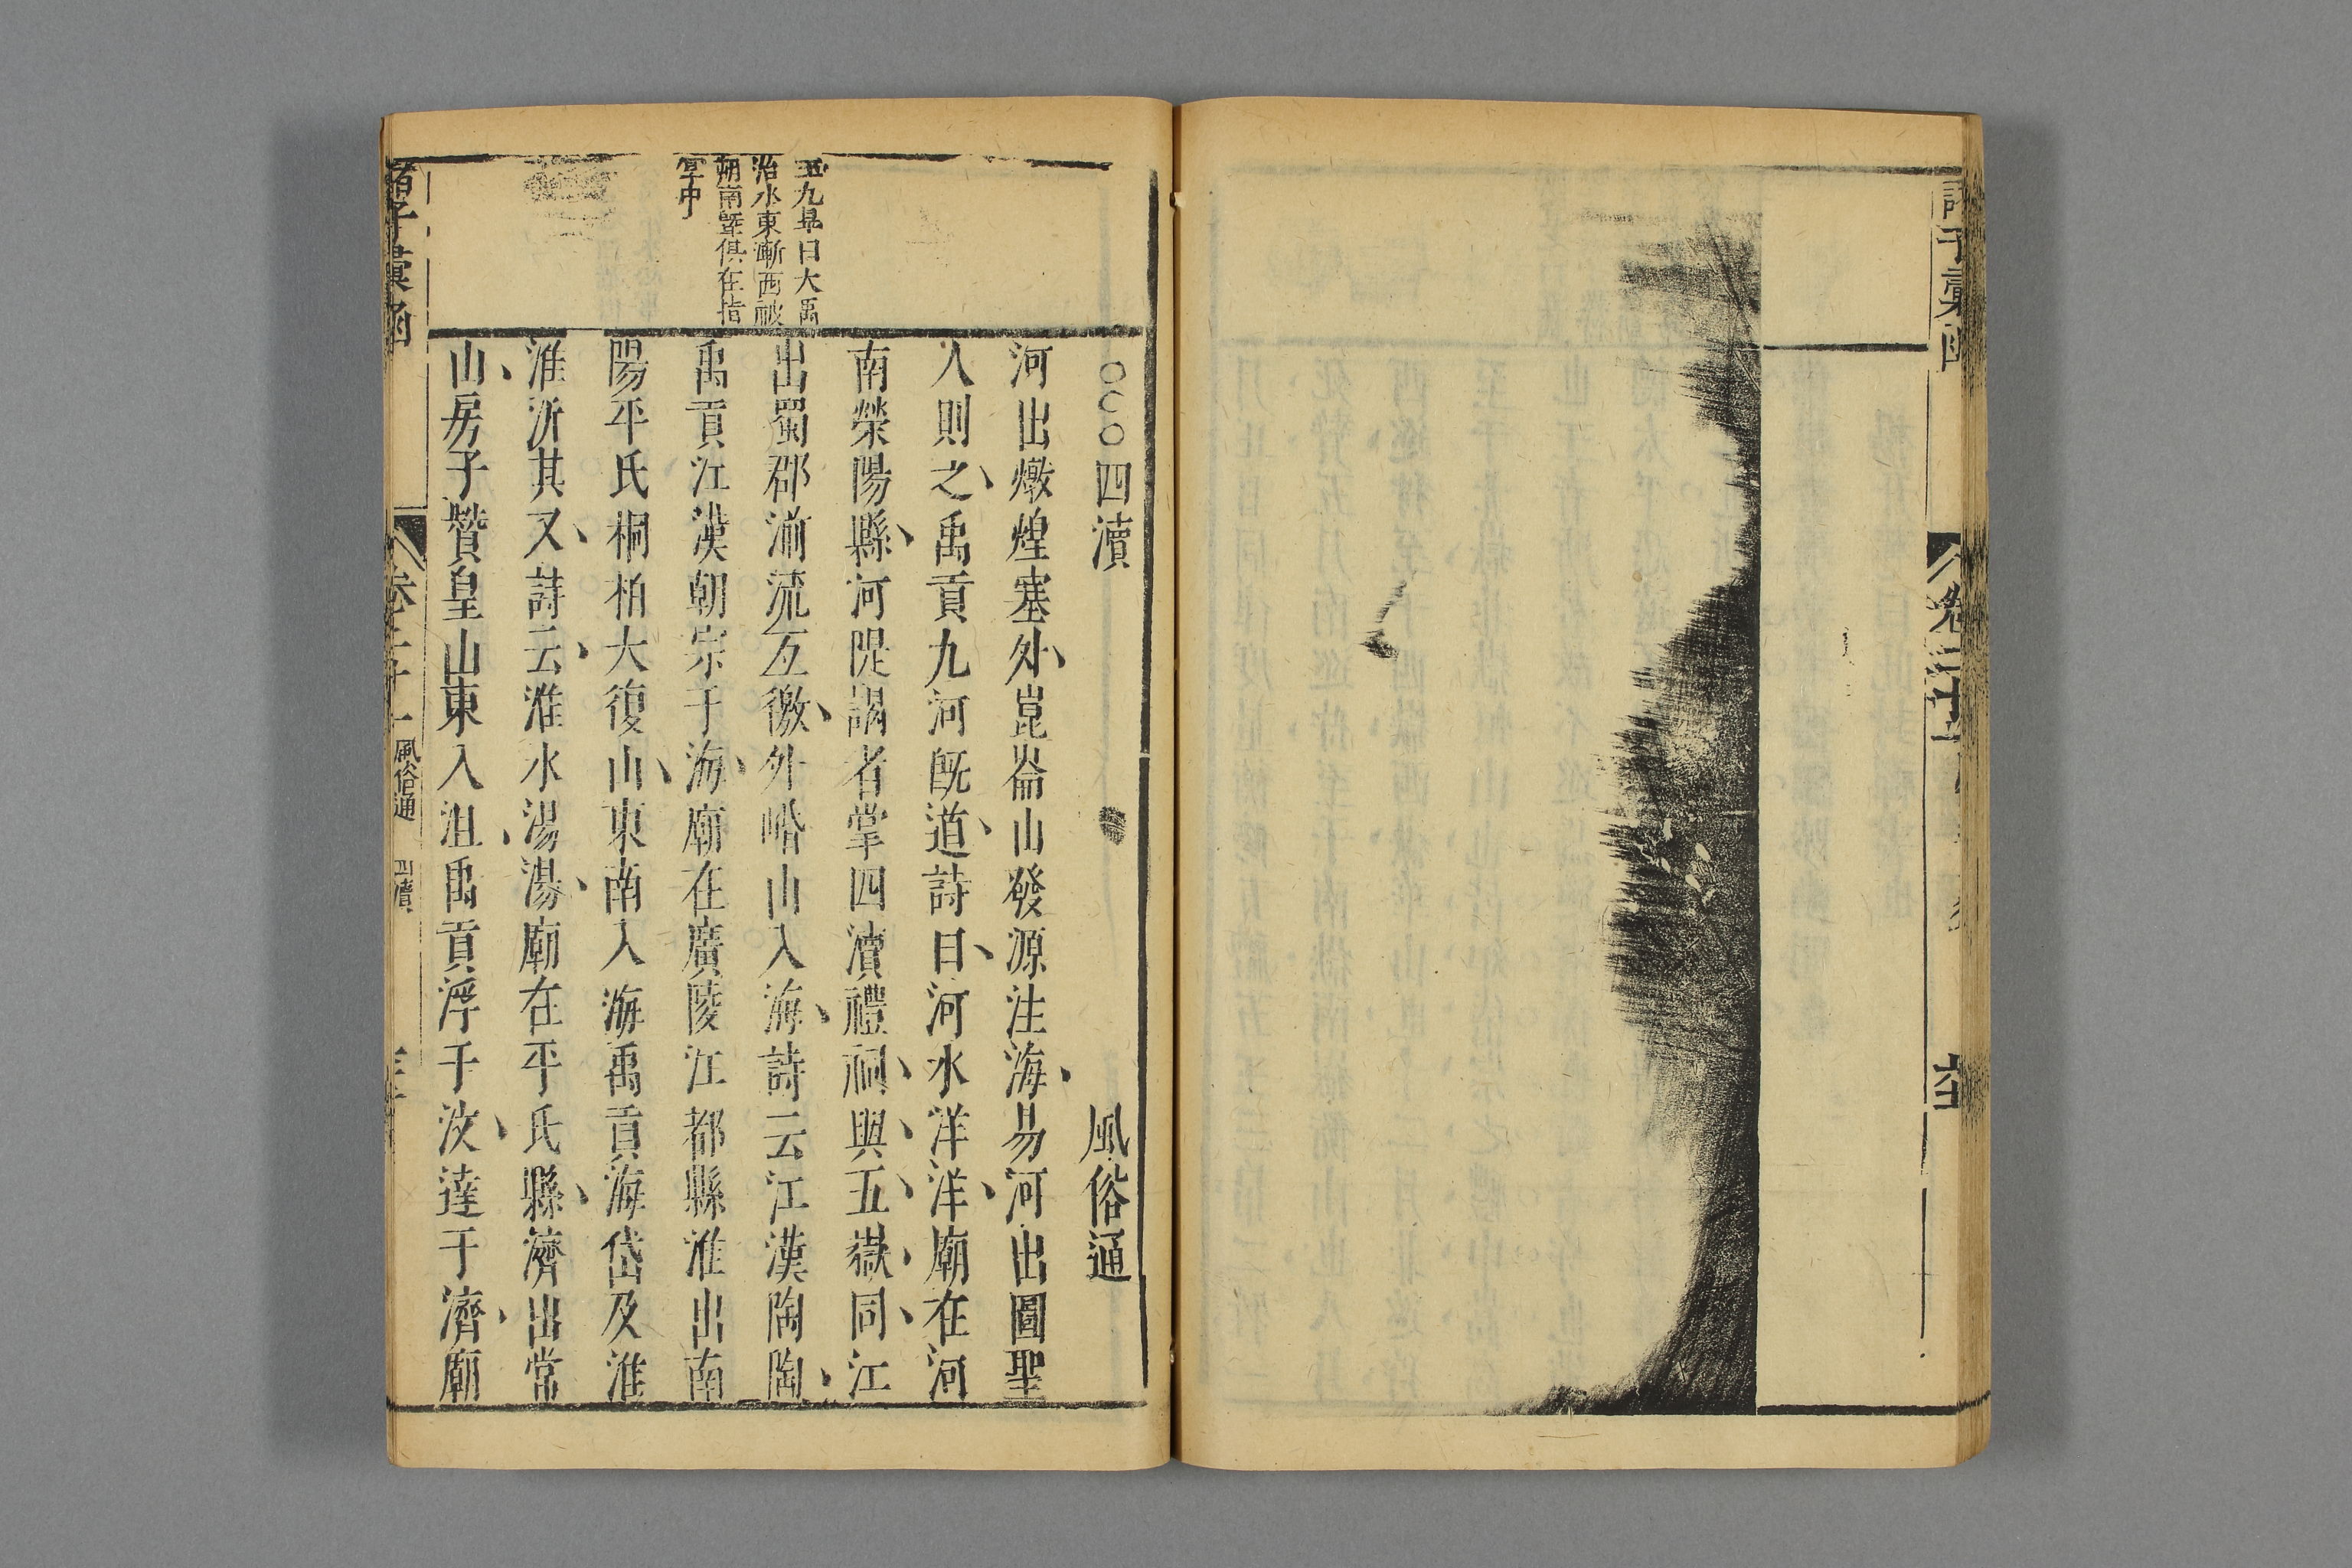 諸子彙函
○○○四瀆 風俗通
河出燉煌塞外崑崙山發源注海易河出圖聖
入則之禹貢九河旣道詩曰河水洋洋廟在河
南滎陽縣河隄謁者掌四瀆禮祠與五嶽同江
出蜀郡湔流互徼外㟭山入海詩云江漢陶陶
禹貢江漢朝宗于海廟在廣陵江都縣淮出南
陽平氏桐柏大復山東南入海禹貢海岱及淮
淮沂其乂詩云淮水湯湯廟在平氏縣濟出常
山房子贊皇山東入沮禹貢浮于汶達于濟廟
王九皐曰大禹
治水東漸西被
朔南曁俱在指
掌中
諸子彙函
卷二十一
風俗通
四瀆